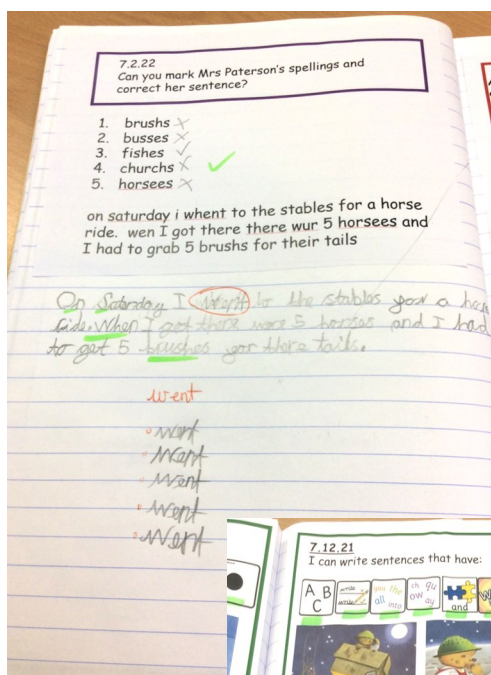 7.2.22
Can you mark Mrs Paterson's spellings and
correct her sentence?
1. brushs
2. busses
3. fishes
4. churchs
5. horsees
on saturday i whent to the stables for a horse
ride. wen I got there there wur 5 horsees and
I had to grab 5 brushs for their tails
On Saturday I went to the stables for a
ride. When I got there were 5 horses and I had
to get 5 brushes for there tails.
went
went
went
went
went
went
7.12.21
I can write sentences that have:
A B
C
write
write
you the
all into
ch qu
ow ay
and